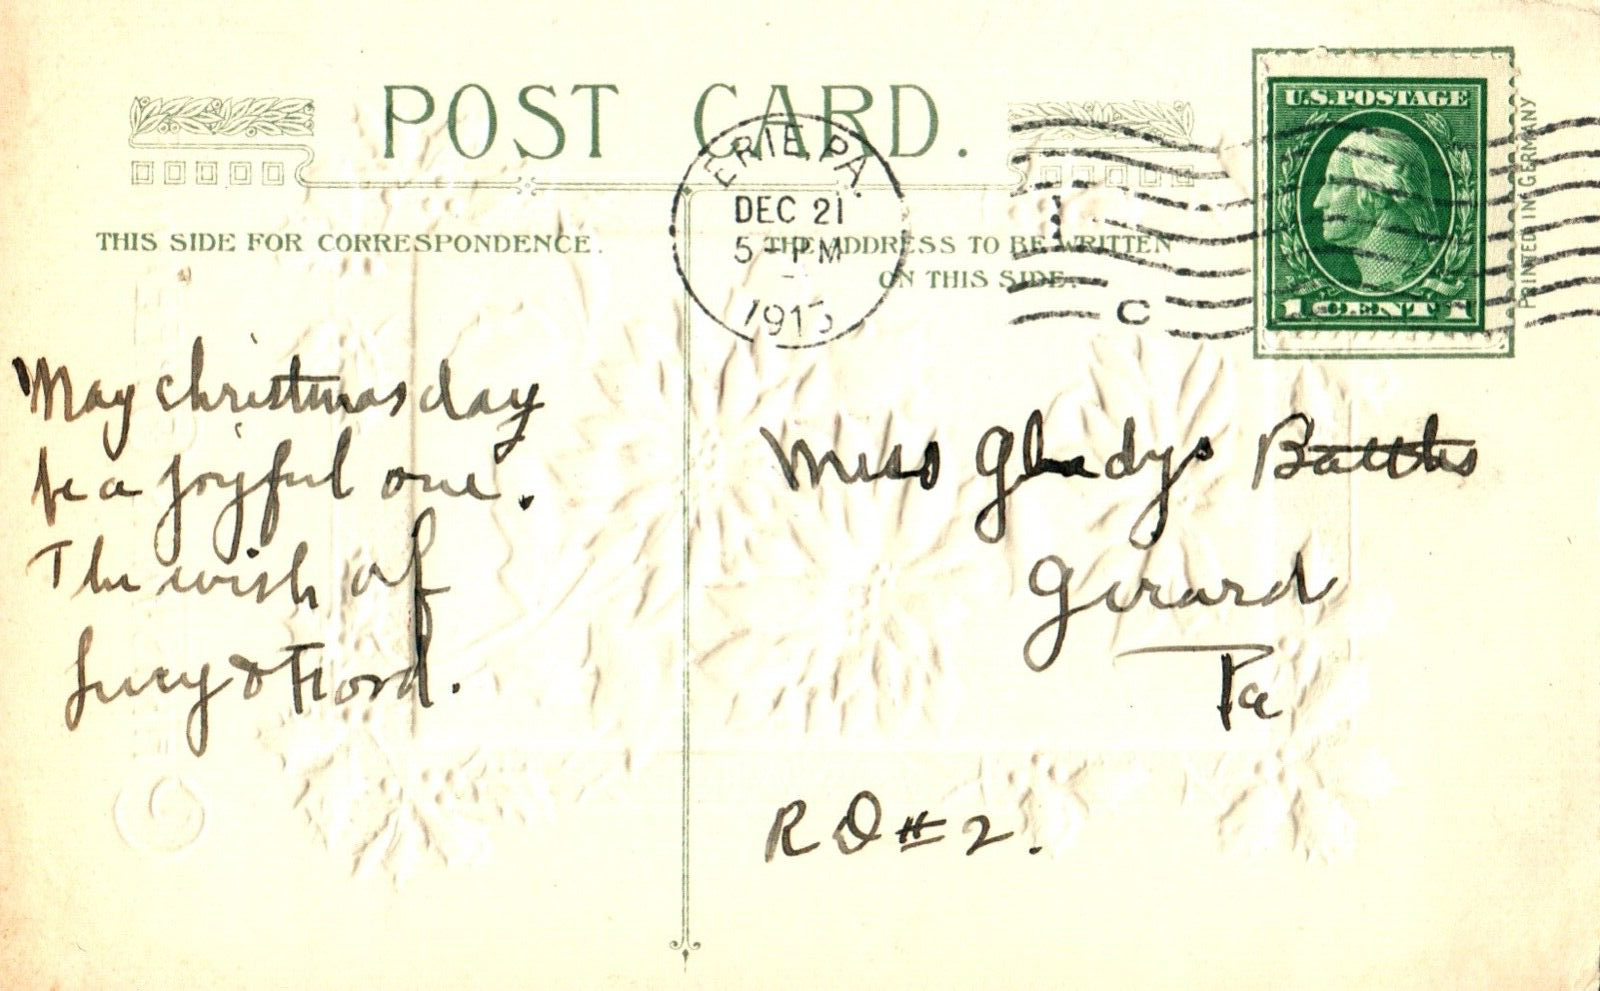 POST CARD.
ERIE, PA.
DEC 21
5 - PM
1913
C
U.S. POSTAGE
1 CENT 1
PRINTED IN GERMANY
THIS SIDE FOR CORRESPONDENCE.
THE ADDRESS TO BE WRITTEN
ON THIS SIDE.
May christmas day
be a joyful one.
The wish of
Lucy & Ford.
Miss Gladys Battles
Girard
Pa
R D # 2.